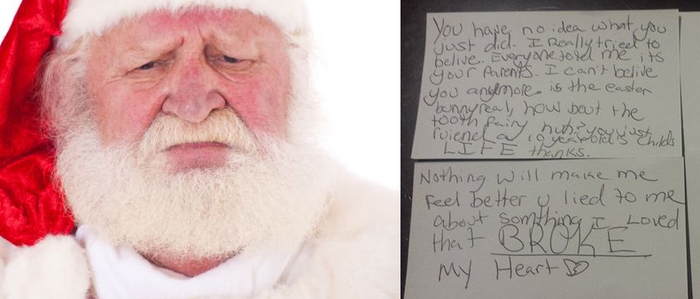 You have no idea what you
just did. I Really tried to
belive. Everyone told me its
your Parents. I can't belive
you anymore. is the easter
bunny real, how bout the
tooth fairy, huh? you just
a 10 year old's childs
LIFE thanks.
Nothing will make me
feel better u lied to me
about somthing I Loved
that BROKE
My Heart